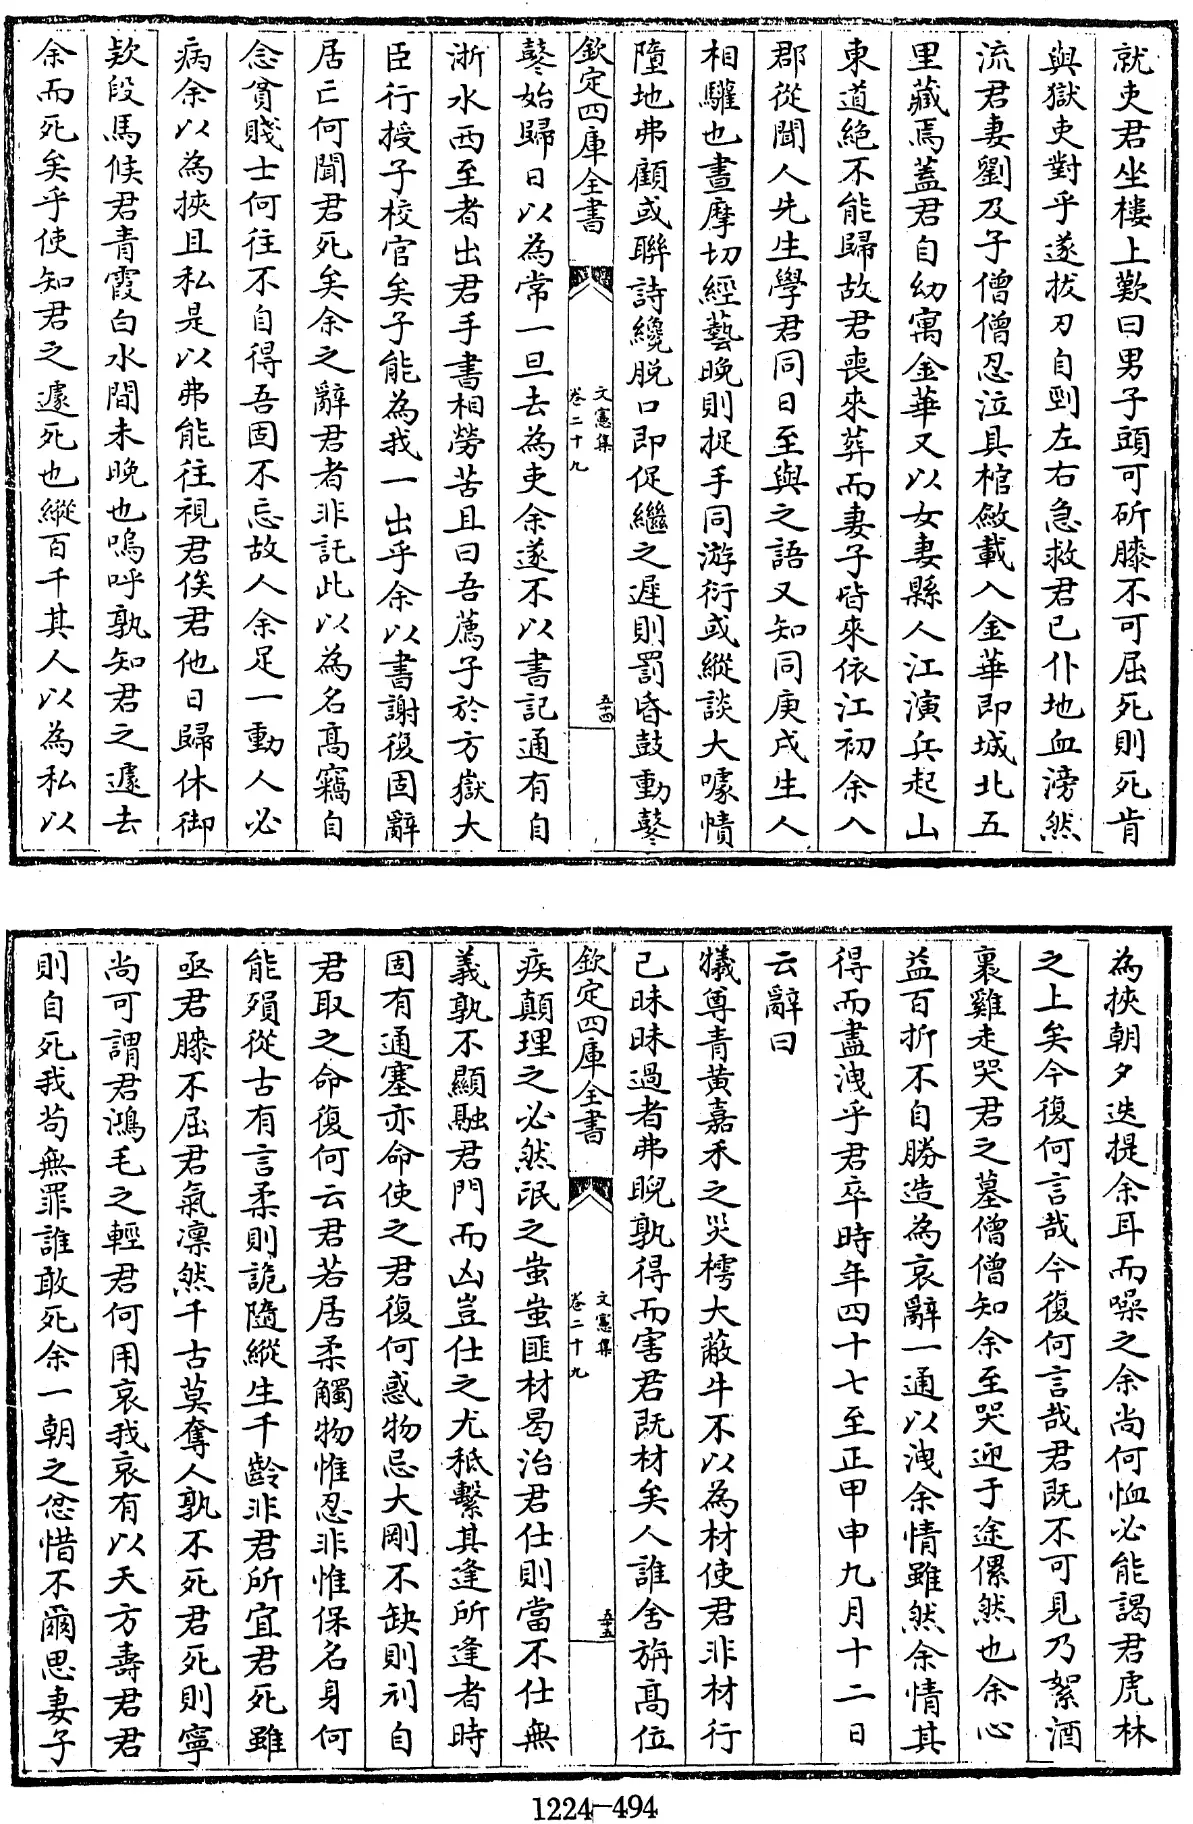 就吏君坐樓上歎曰男子頭可斫膝不可屈死則死肯
與獄吏對乎遂拔刃自剄左右急救君已仆地血滂然
流君妻劉及子僧僧忍泣具棺斂載入金華即城北五
里藏焉蓋君自幼寓金華又以女妻縣人江演兵起山
東道絶不能歸故君喪來葬而妻子皆來依江初余入
郡從聞人先生學君同日至與之語又知同庚戌生人
相驩也晝摩切經藝晚則捉手同游衍或縱談大噱幘
墮地弗顧或聯詩纔脱口即促繼之遲則罰昏鼓動鼕
欽定四庫全書
文憲集
卷二十九
五十四
鼕始歸日以為常一旦去為吏余遂不以書記通有自
浙水西至者出君手書相勞苦且曰吾薦子於方嶽大
臣行授子校官矣子能為我一出乎余以書謝復固辭
居亡何聞君死矣余之辭君者非託此以為名高竊自
念貧賤士何往不自得吾固不忘故人余足一動人必
病余以為挾且私是以弗能往視君俟君他日歸休御
欵段馬候君青霞白水間未晚也嗚呼孰知君之遽去
余而死矣乎使知君之遽死也縱百千其人以為私以
為挾朝夕迭提余耳而噪之余尚何恤必能謁君虎林
之上矣今復何言哉今復何言哉君既不可見乃絮酒
裹雞走哭君之墓僧僧知余至哭迎于途傫然也余心
益百折不自勝造為哀辭一通以洩余情雖然余情其
得而盡洩乎君卒時年四十七至正甲申九月十二日
云辭曰
犧尊青黄嘉禾之災樗大蔽牛不以為材使君非材行
己昧昧過者弗睨孰得而害君既材矣人誰舍旃高位
欽定四庫全書
文憲集
卷二十九
五十五
疾顛理之必然氓之蚩蚩匪材曷治君仕則當不仕無
義孰不顯融君門而凶豈仕之尤秪繫其逢所逢者時
固有通塞亦命使之君復何惑物忌大剛不缺則刓自
君取之命復何云君若居柔觸物惟忍非惟保名身何
能殞從古有言柔則詭隨縱生千齡非君所宜君死雖
亟君膝不屈君氣凛然千古莫奪人孰不死君死則寧
尚可謂君鴻毛之輕君何用哀我哀有以天方壽君君
則自死我茍無罪誰敢死余一朝之忿惜不爾思妻子
1224-494